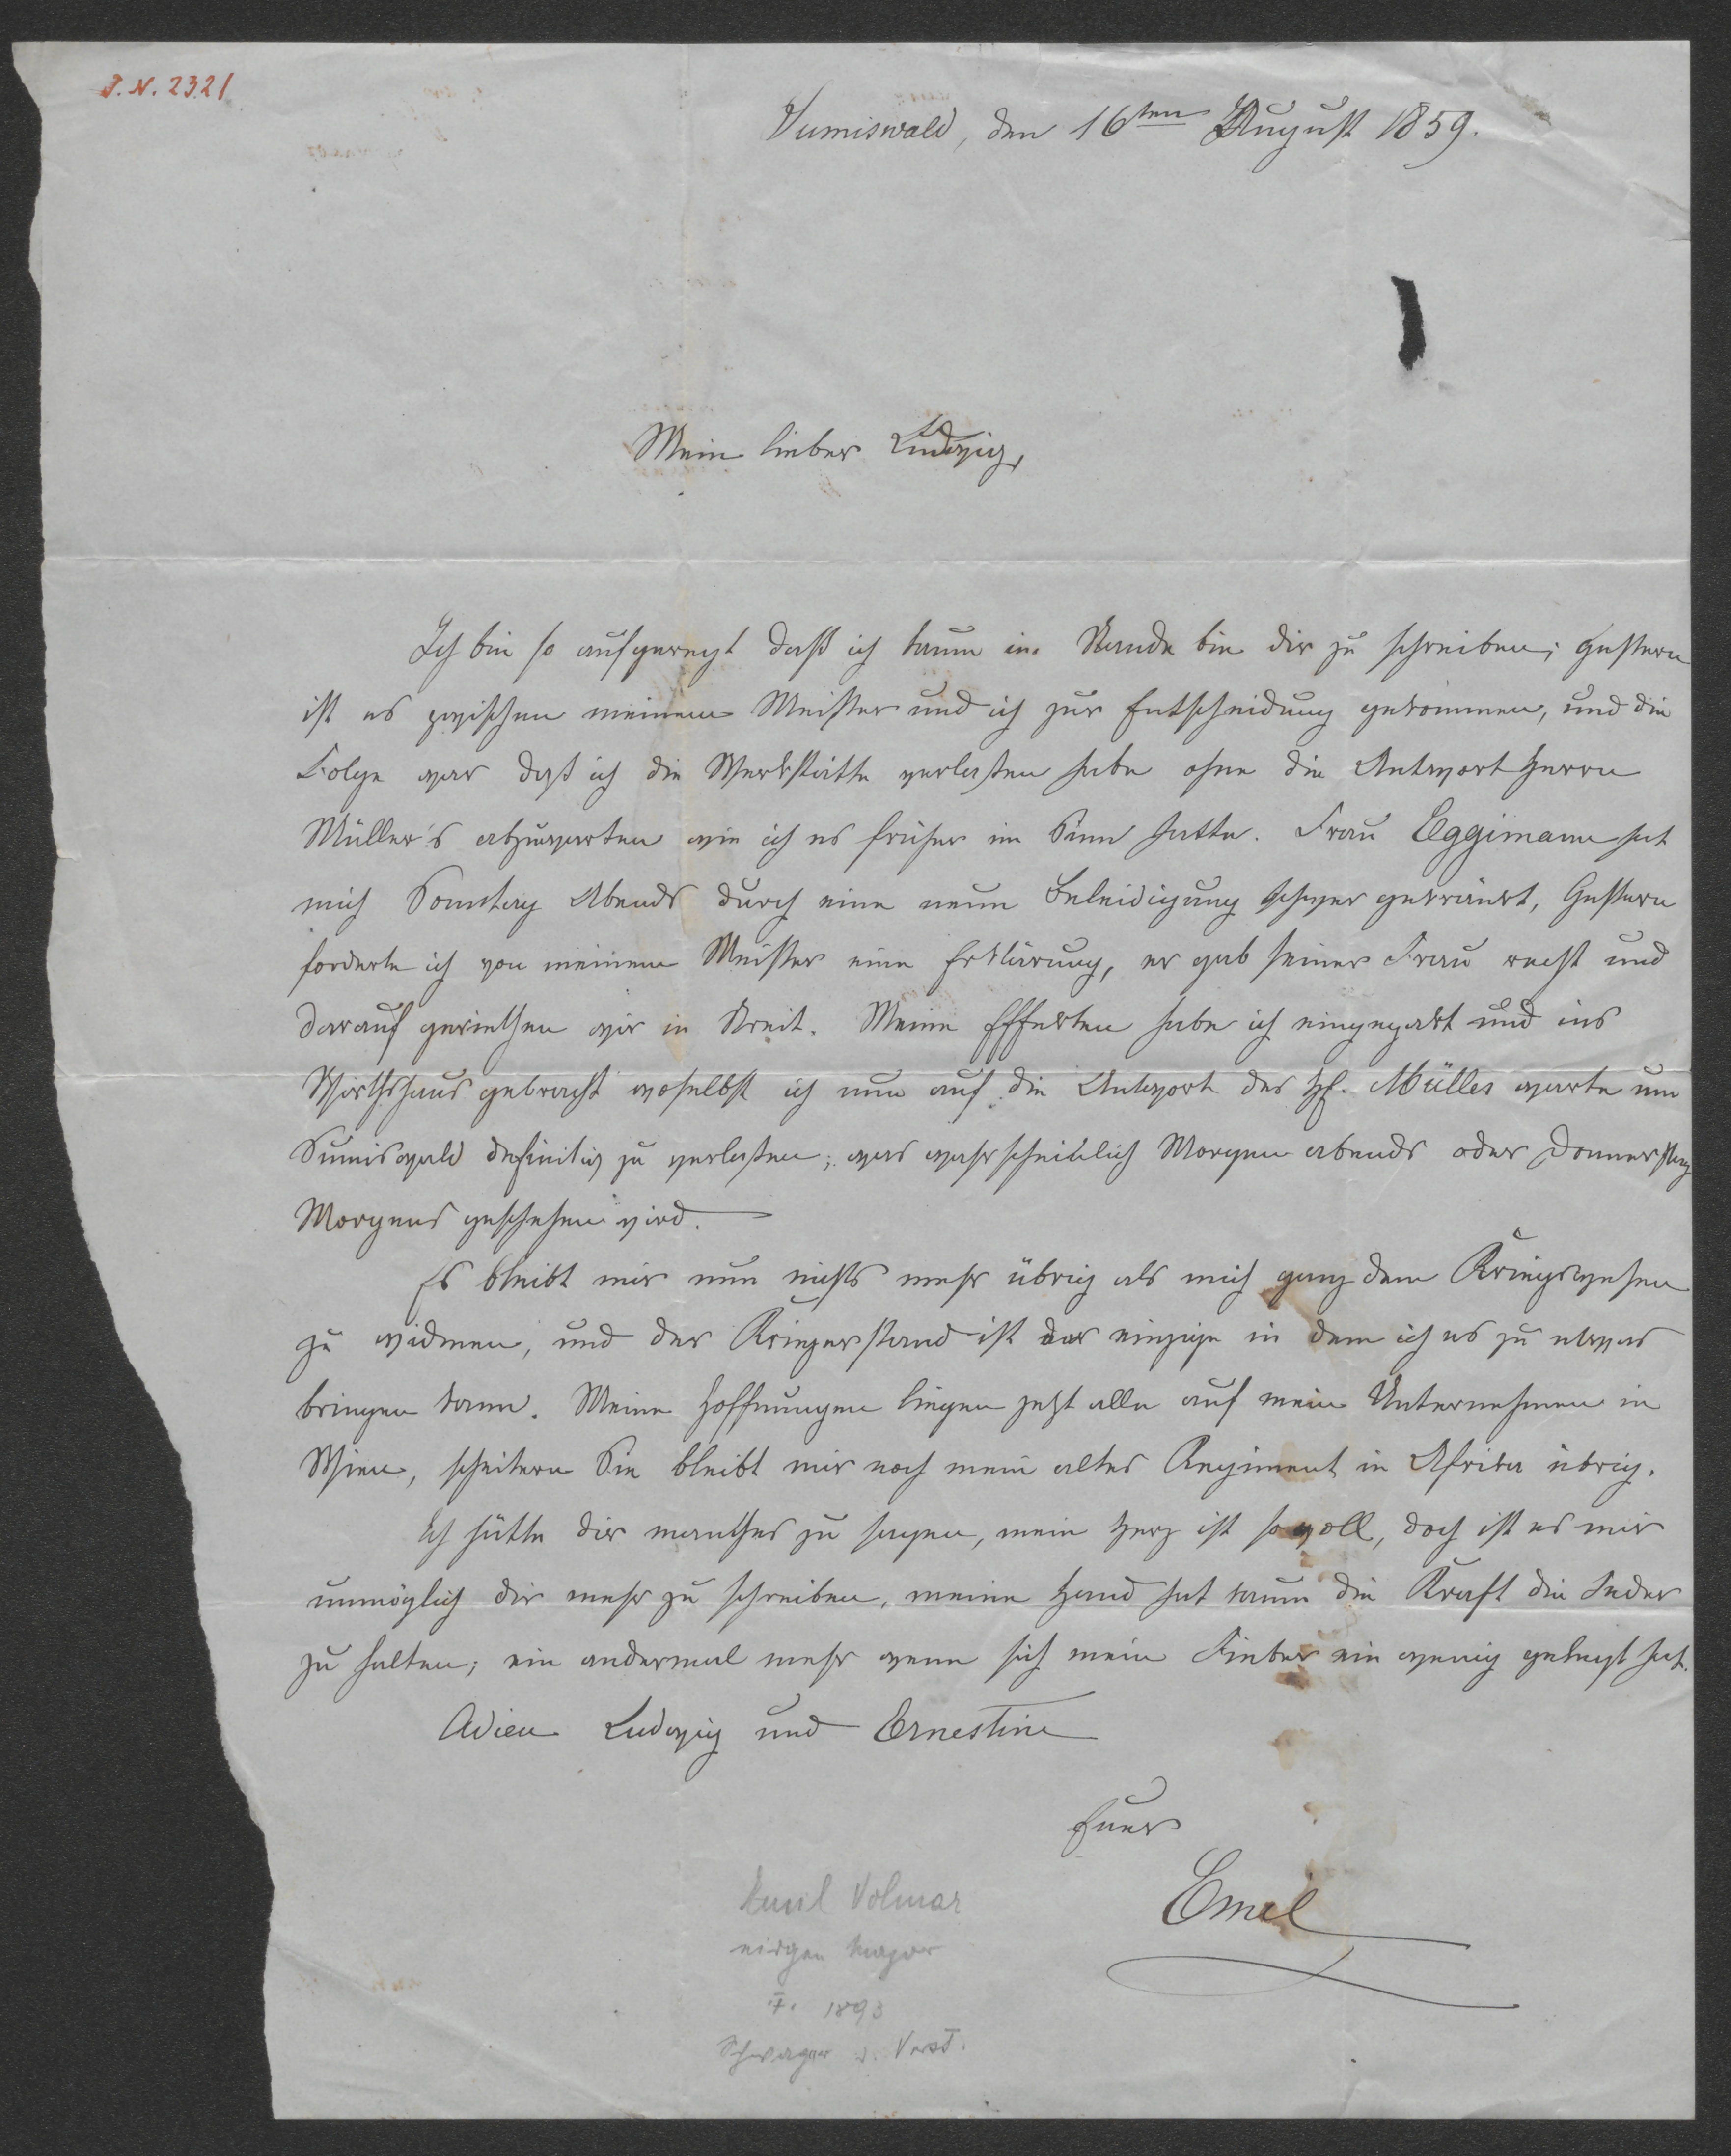 J. N. 2321
Sumiswald, den 16ten August 1859.
Mein lieber Ludwig,
Ich bin so aufgeregt daß ich kaum im Stande bin dir zu schreiben; gestern
ist es zwischen meinem Meister und ich zur Entscheidung gekommen, und die
Folge war daß ich die Werkstätte verlaßen habe ohne die Antwort Herrn
Müller's abzuwarten wie ich es früher im Sinn hatte. Frau Eggimann hat
mich Sonntag Abends durch eine neue Beleidigung schwer gekränkt, Gestern
forderte ich von meinem Meister eine Erklärung, er gab seiner Frau recht und
darauf geriethen wir in Streit. Meine Effekten habe ich eingepakt und ins
Wirthshaus gebracht woselbst ich nun auf die Antwort des H. Müller warte um
Sumiswald definitiv zu verlaßen; was wahrscheinlich Morgen abends oder Donnerstag
Morgens geschehen wird.
Es bleibt mir nun nichts mehr übrig als mich ganz dem Kriegswesen
zu widmen, und der Kriegerstand ist der einzige in dem ich es zu etwas
bringen kann. Meine Hoffnungen liegen jetzt alle auf mein Unternehmen in
Wien, scheitern Sie bleibt mir noch mein altes Regiment in Afrika übrig.
Ich hätte dir manches zu sagen, mein Herz ist so voll, doch ist es mir
unmöglich dir mehr zu schreiben, meine Hand hat kaum die Kraft die Feder
zu halten; ein andermal mehr wenn sich mein Fieber ein wenig gelegt hat.
Adieu Ludwig und Ernestine
Euer
Emil
Emil Volmar
Major
†. 1893
Schwager v. Verst.